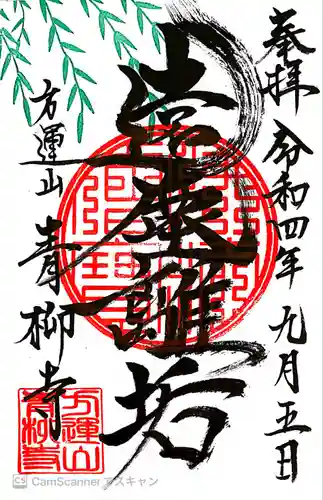 奉拝
令和四年
九月五日
遠塵離垢
方運山
青柳寺
方運山
青柳寺
CS CamScanner でスキャン